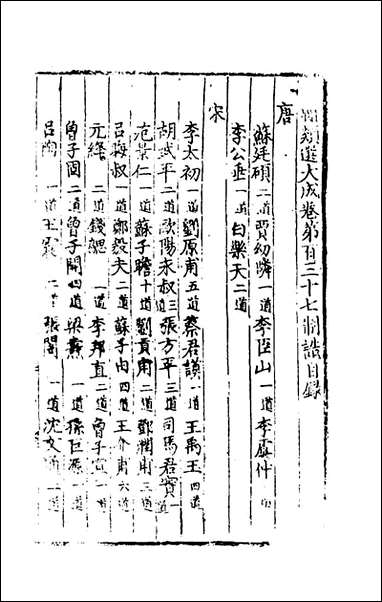 類選大成卷第百三十七制誥目録
唐
蘇廷碩二道賈幼隣一道李臣山一道李虞仲
李公垂一道白樂天二道
宋
李太初一道劉原甫五道蔡君謨一道王禹玉四道
胡武平二道歐陽永叔三張方平三道司馬君實一道
范景仁一道蘇子瞻十道劉貢甫二道鄧潤甫三道
呂梅叔一道鄭毅夫二道蘇子由四道王介甫六道
元絳二道錢勰一道李邦直二道曾子宣一道
曾子固二道曾子開四道梁燾一道孫巨源一道
呂陶一道王一道張閣一道沈文通一道